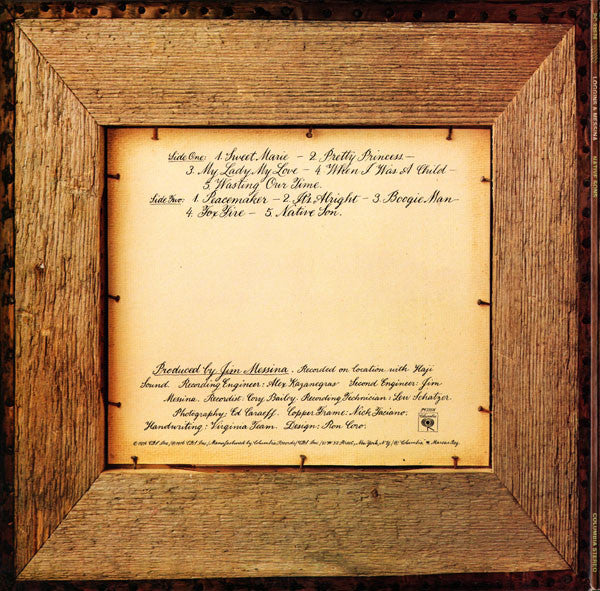 Side One: 1. Sweet Marie — 2. Pretty Princess —
3. My Lady, My Love — 4. When I Was A Child —
5. Wasting Our Time.
Side Two: 1. Peacemaker — 2. It's Alright — 3. Boogie Man
4. Fox Fire — 5. Native Son.
Produced by Jim Messina. Recorded on location with Haji
Sound. Recording Engineer: Alex Kazanegras Second Engineer: Jim
Messina. Recordist: Cory Bailey. Recording Technician: Lew Schatzer.
Photography: Ed Caraeff. Copper Frame: Nick Faciano.
Handwriting: Virginia Team. Design: Ron Coro.
© 1976 CBS Inc./℗ 1976 CBS Inc./Manufactured by Columbia Records/CBS Inc./51 W. 52 Street, New York, N.Y./® "Columbia," Marcas Reg.
Columbia
LOGGINS & MESSINA NATIVE SONS
COLUMBIA STEREO